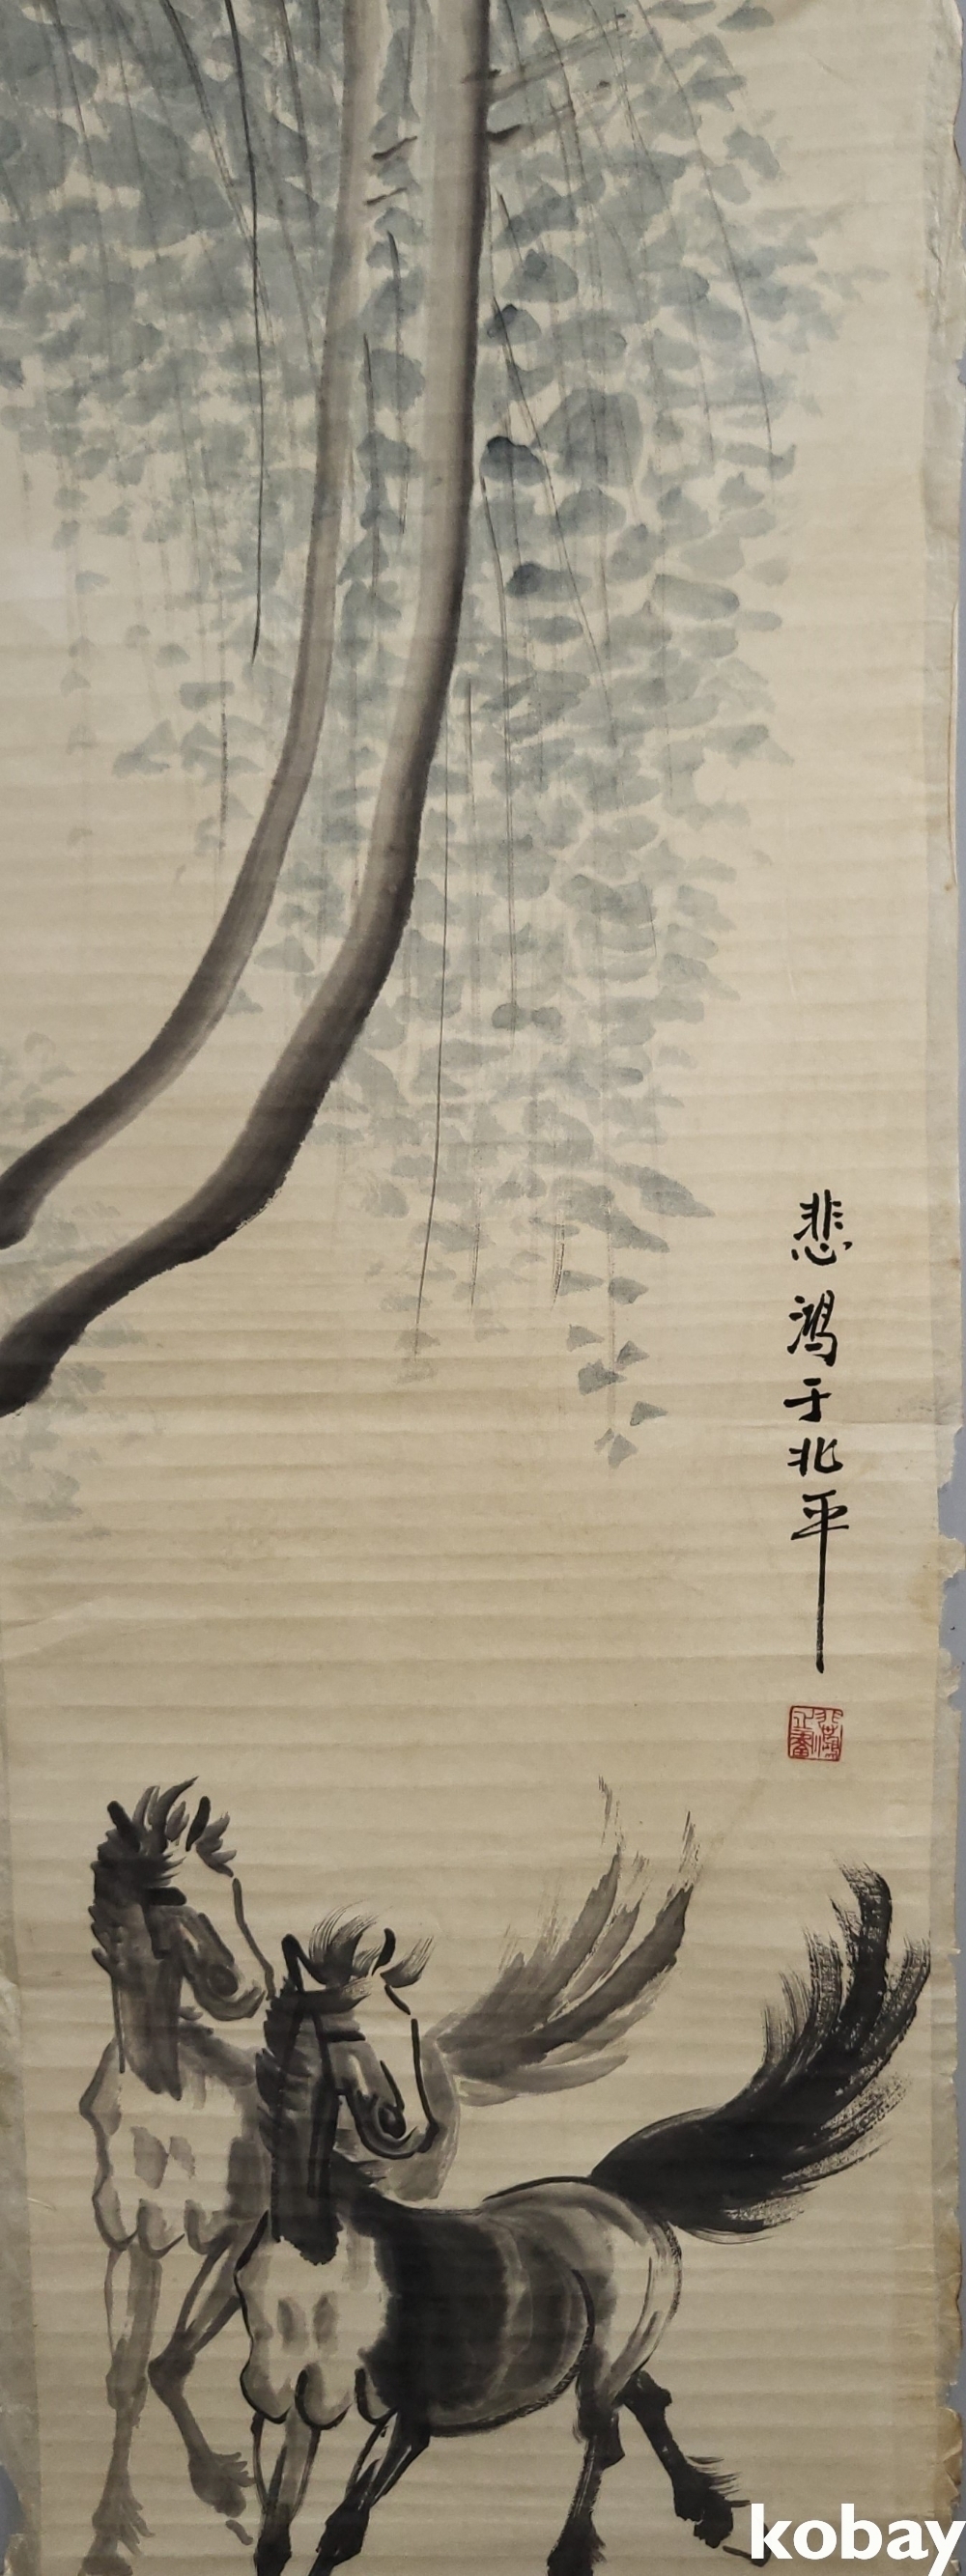 悲鴻于北平
kobay